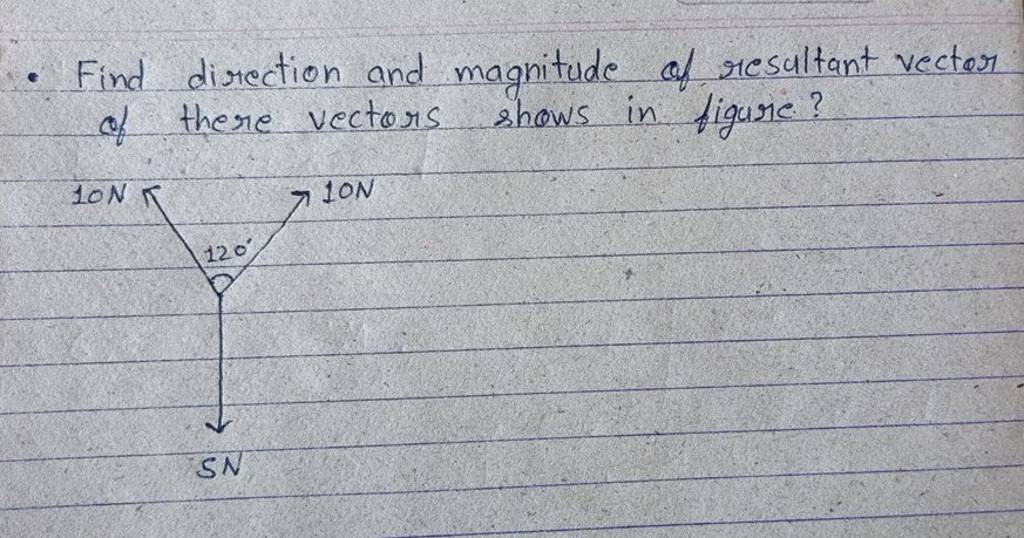 • Find direction and magnitude of resultant vector
of there vectors shows in figure?
10N 10N
120°
5N